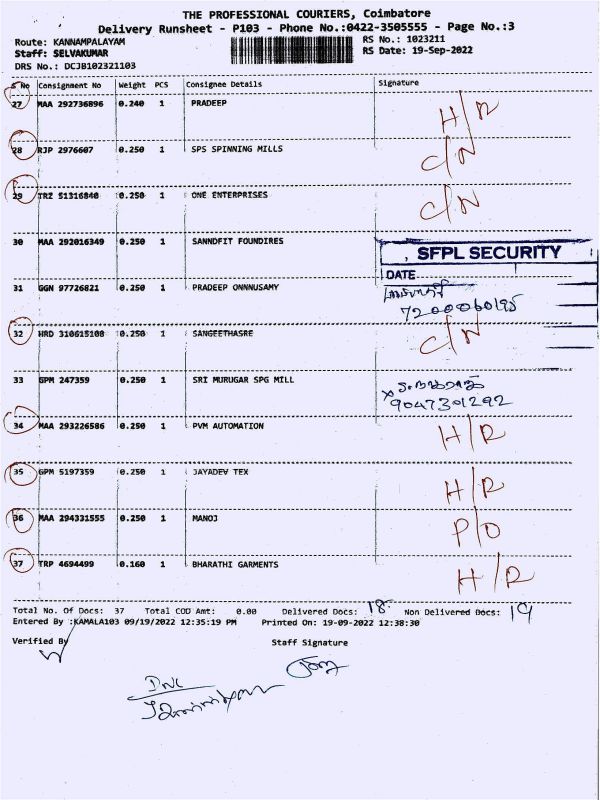 THE PROFESSIONAL COURIERS, Coimbatore
Delivery Runsheet - P103 - Phone No.:0422-3505555 - Page No.:3
Route: KANNAMPALAYAM RS No.: 1023211
Staff: SELVAKUMAR RS Date: 19-Sep-2022
DRS No.: DCJB102321103
S No Consignment No Weight PCS Consignee Details Signature
27 MAA 292736896 0.240 1 PRADEEP H/R
28 RJP 2976607 0.250 1 SPS SPINNING MILLS C/N
29 TRZ 51316840 0.250 1 ONE ENTERPRISES C/N
30 MAA 292016349 0.250 1 SANNDFIT FOUNDIRES
SFPL SECURITY
DATE
31 GGN 97726821 0.250 1 PRADEEP ONNNUSAMY
7200060195
32 HRD 310615108 0.250 1 SANGEETHASRE C/N
33 GPM 247359 0.250 1 SRI MURUGAR SPG MILL
9047301292
34 MAA 293226586 0.250 1 PVM AUTOMATION H/R
35 GPM 5197359 0.250 1 JAYADEV TEX H/R
36 MAA 294331555 0.250 1 MANOJ P/O
37 TRP 4694499 0.160 1 BHARATHI GARMENTS H/R
Total No. Of Docs: 37 Total COD Amt: 0.00 Delivered Docs: 18 Non Delivered Docs: 19
Entered By :KAMALA103 09/19/2022 12:35:19 PM Printed On: 19-09-2022 12:38:30
Verified By Staff Signature